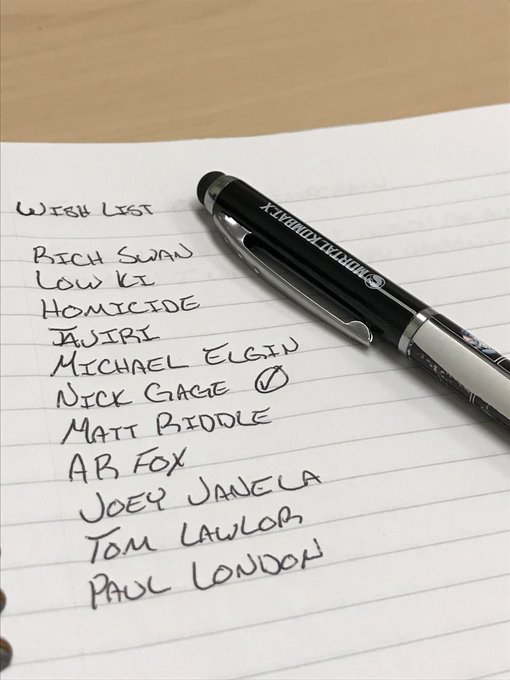 WISH LIST
RICH SWAN
LOW KI
HOMICIDE
TAJIRI
MICHAEL ELGIN
NICK GAGE
MATT RIDDLE
AR FOX
JOEY JANELA
TOM LAWLOR
PAUL LONDON
MORTAL KOMBAT X